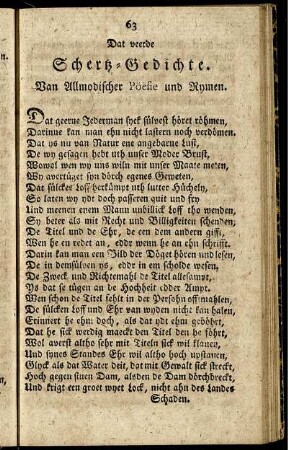 63
Dat veerde
Schertz-Gedichte.
Van Allmodischer Pöësie und Rymen.
Dat geerne Jederman syck sülvest höret röhmen,
Darinne kan man ehn nicht lastern noch verdömen.
Dat ys nu van Natur ene angebarne Lust,
De wy gesagen hebt uth unser Moder Brust,
Wowal wen wy uns wiln mit unser Maate meten,
Wy avertüget syn dörch egenes Geweten,
Dat sülckes Loff herkümpt uth lutter Hüchely,
So laten wy ydt doch passeren quit und fry
Und meenen enem Mann unbillick Loff tho wenden,
Sy beter als mit Recht und Billigkeiten schenden,
De Titel und de Ehr, de een dem andern gifft,
Wen he en redet an, eddr wenn he an ehn schrifft.
Darin kan man een Bild der Döget hören und lesen,
De in demsülven ys, eddr in em scholde wesen,
De Zweck und Richtemahl de Titel allesampt,
Ys dat se tügen an de Hochheit edder Ampt.
Wen schon de Titel fehlt in der Persohn offmahlen,
De sülcken Loff und Ehr van wyden nicht kan halen,
Erinnert he ehm doch, als dat ydt ehm gehöhrt,
Dat he sick werdig maeckt den Titel den he föhrt,
Wol averst altho sehr mit Titeln sick wil klauen,
Und synes Standes Ehr wil altho hoch upstauen,
Glyck als dat Water deit, dat mit Gewalt sick streckt,
Hoch gegen sinen Dam, alsden de Dam dörchbreckt,
Und krigt een groet wyet Lock, nicht ahn des Landes
Schaden.